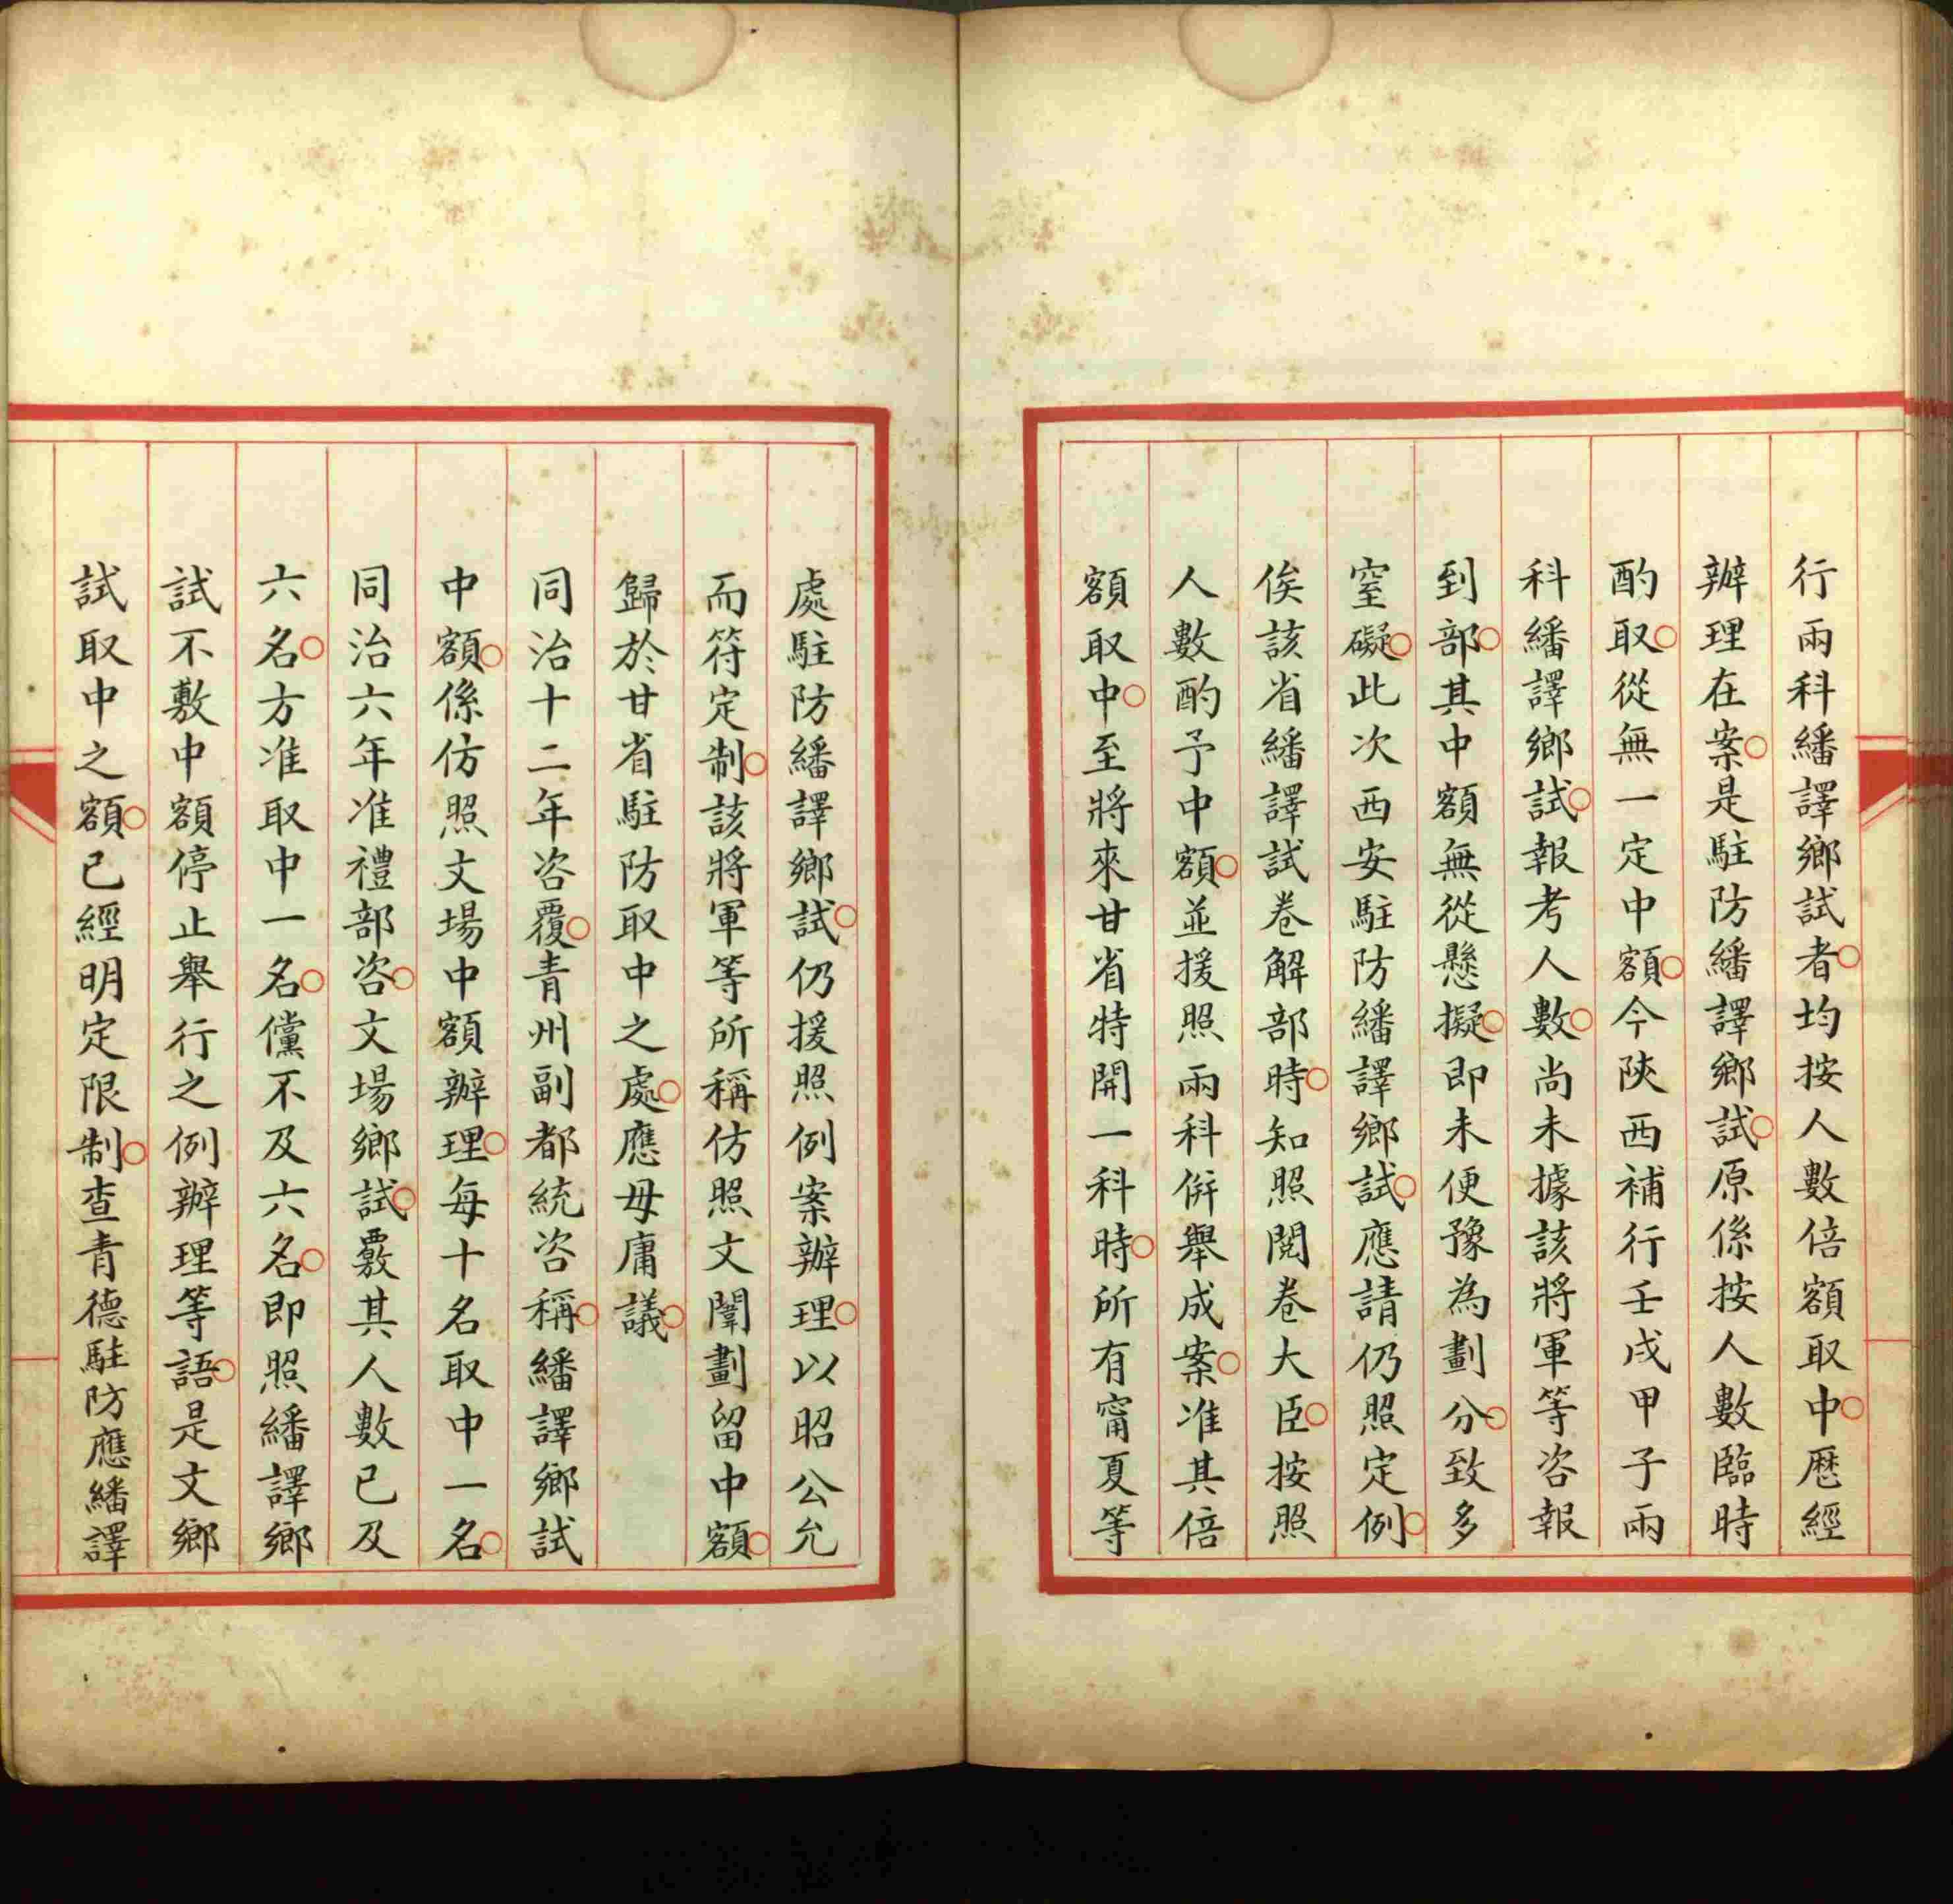 行兩科繙譯鄉試者○均按人數倍額取中○歷經
辦理在案○是駐防繙譯鄉試○原係按人數臨時
酌取○從無一定中額○今陝西補行壬戌甲子兩
科繙譯鄉試○報考人數○尚未據該將軍等咨報
到部○其中額無從懸擬○即未便豫為劃分○致多
窒礙○此次西安駐防繙譯鄉試○應請仍照定例○
俟該省繙譯試卷解部時○知照閱卷大臣○按照
人數酌予中額○並援照兩科併舉成案○准其倍
額取中○至將來甘省特開一科時○所有甯夏等
處駐防繙譯鄉試○仍援照例案辦理○以昭公允
而符定制○該將軍等所稱仿照文闈劃留中額○
歸於甘省駐防取中之處○應毋庸議○
同治十二年咨覆○青州副都統咨稱○繙譯鄉試
中額○係仿照文場中額辦理○每十名取中一名○
同治六年准禮部咨○文場鄉試○覈其人數已及
六名○方准取中一名○儻不及六名○即照繙譯鄉
試不敷中額停止舉行之例辦理等語○是文鄉
試取中之額○已經明定限制○查青德駐防應繙譯